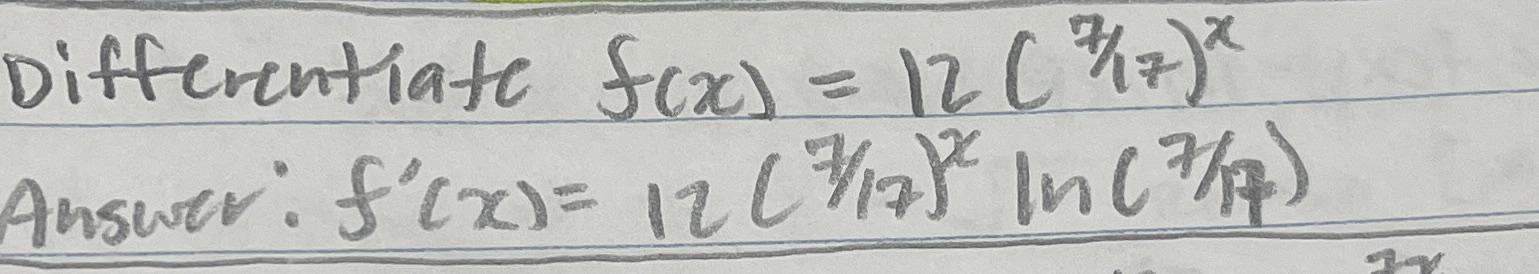 Differentiate f(x) = 12 (7/17)^x
Answer: f'(x) = 12 (7/17)^x ln (7/17)
7x